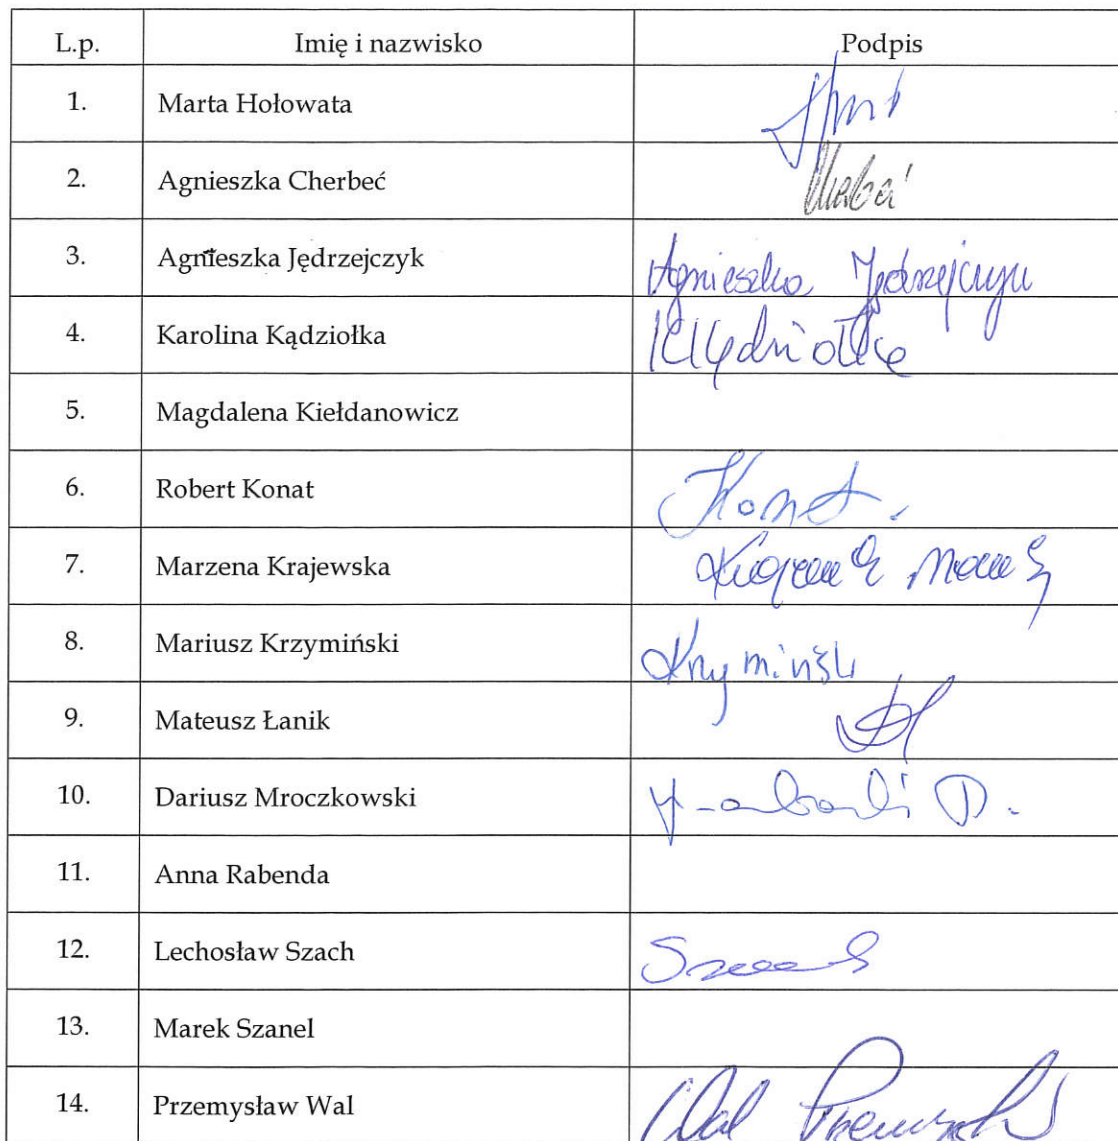 L.p. Imię i nazwisko Podpis
1. Marta Hołowata
2. Agnieszka Cherbeć
3. Agnieszka Jędrzejczyk Agnieszka Jędrzejczyk
4. Karolina Kądziołka KKądziołka
5. Magdalena Kiełdanowicz
6. Robert Konat Konat.
7. Marzena Krajewska
8. Mariusz Krzymiński Krzymiński
9. Mateusz Łanik
10. Dariusz Mroczkowski
11. Anna Rabenda
12. Lechosław Szach
13. Marek Szanel
14. Przemysław Wal Wal Przemysław